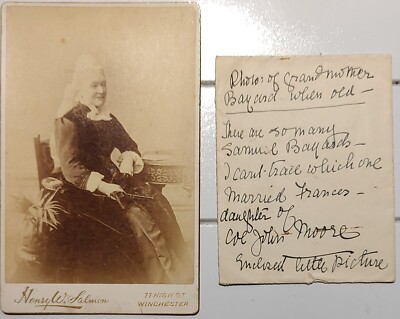 Henry W. Salmon
77 HIGH ST.
WINCHESTER
Photo: of grandmother
Bayard when old —
There are so many
Samuel Bayards —
I can't trace which one
married Frances —
daughter of
Col John Moore
Enclosed little picture